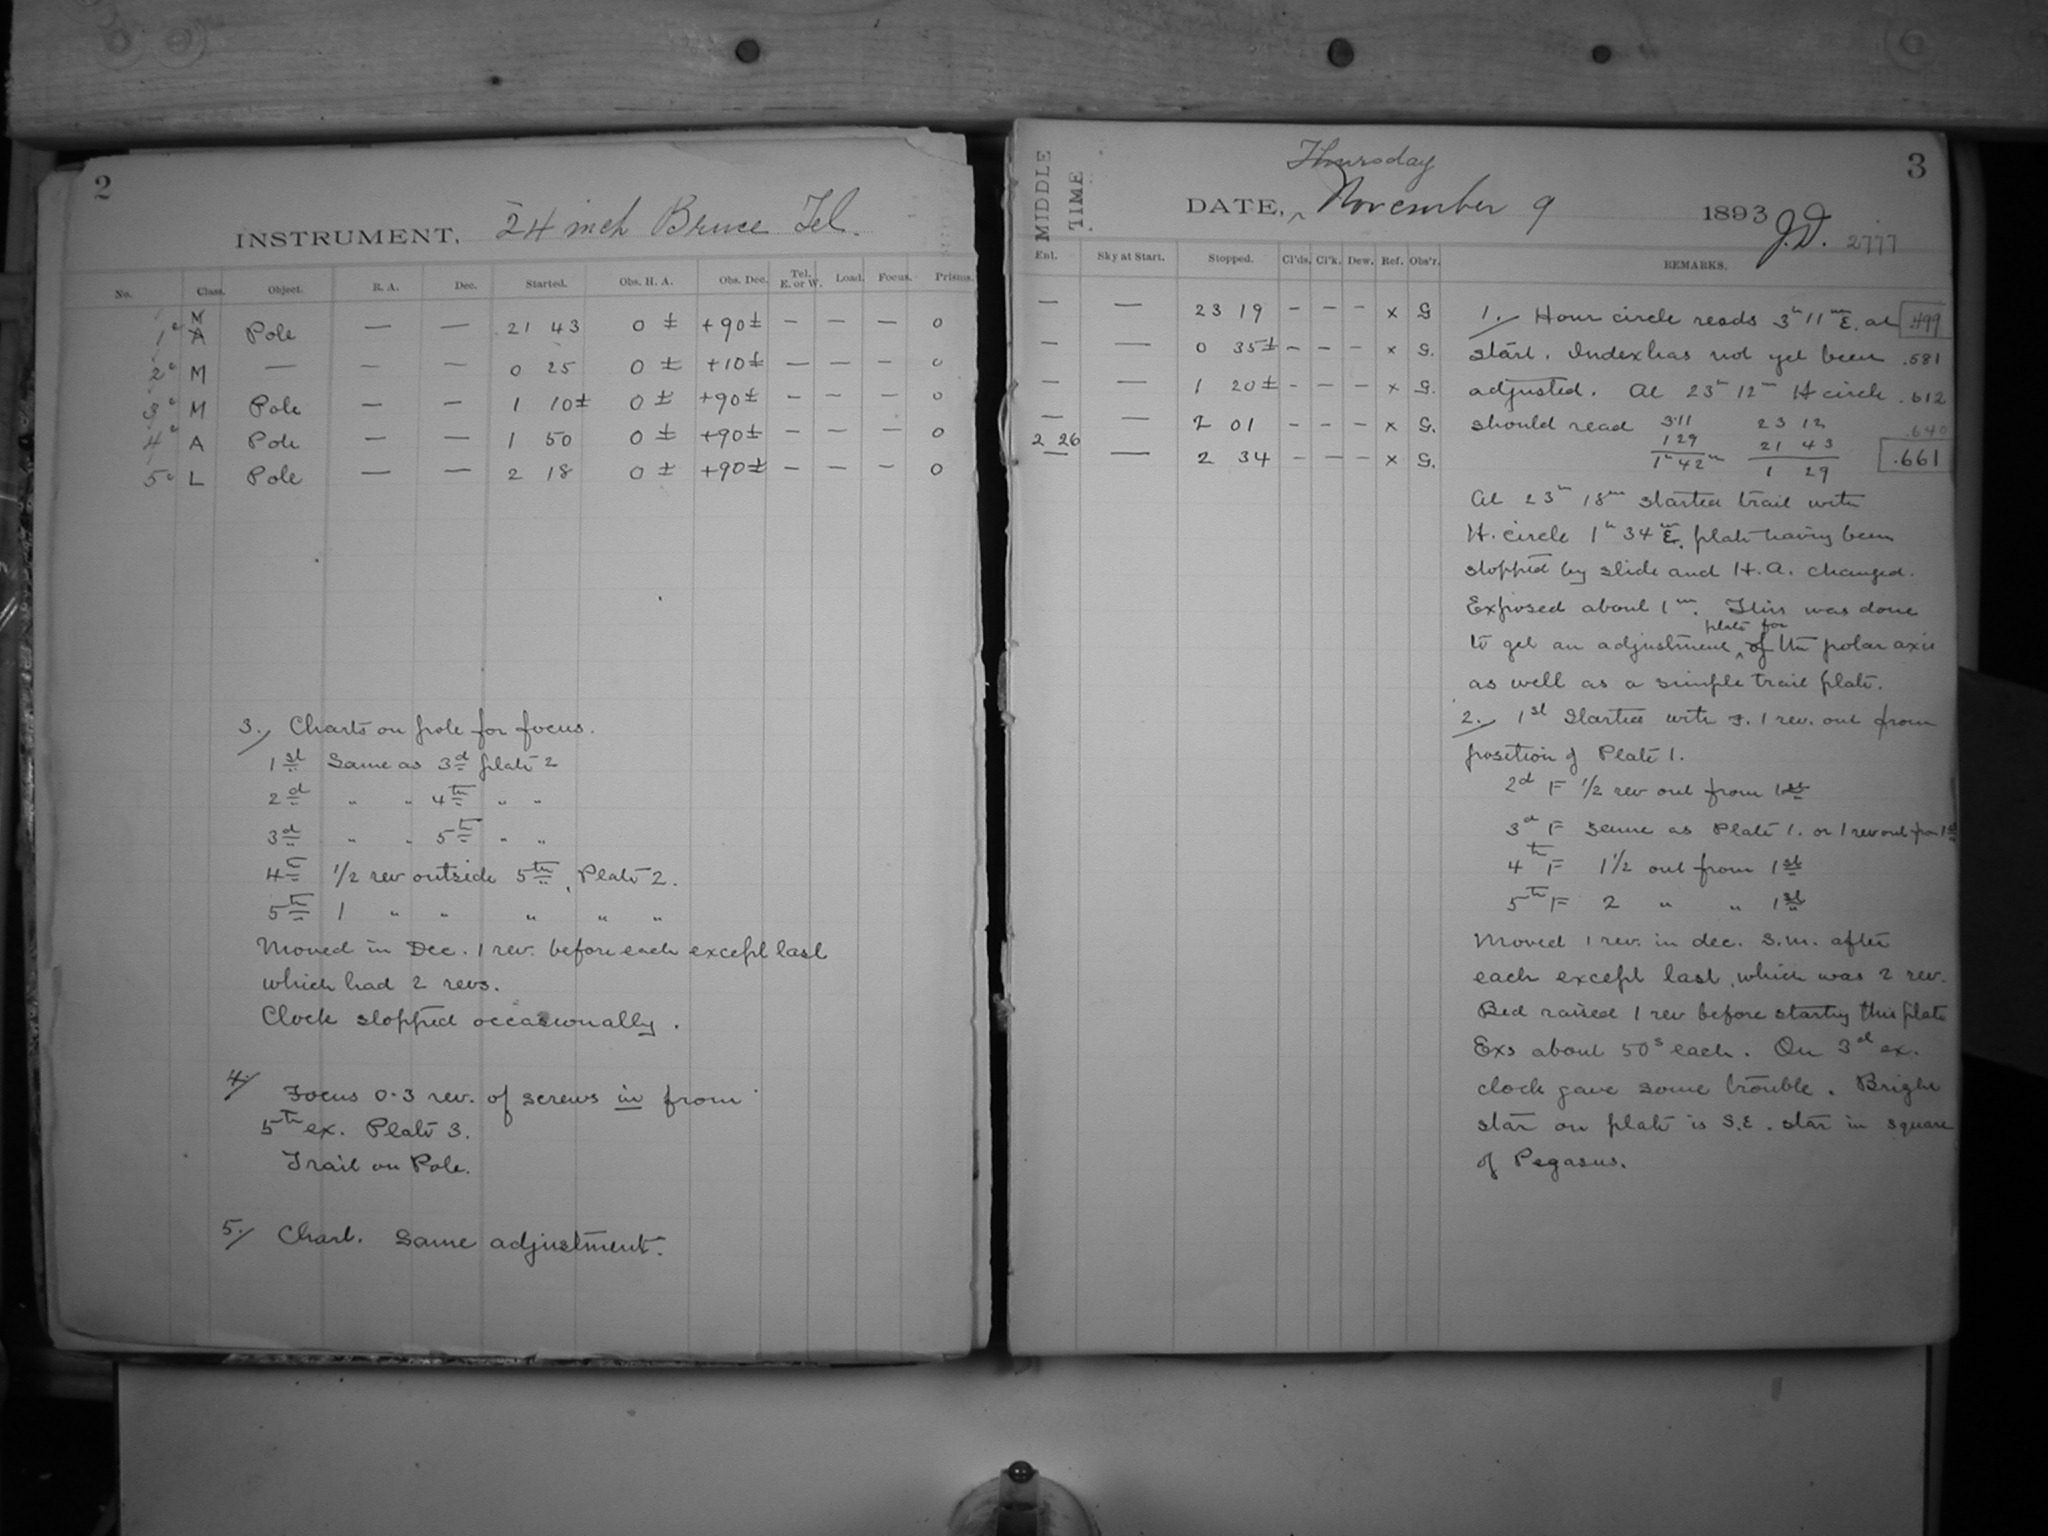 2
INSTRUMENT, 24 inch Bruce Tel.
No. Class. Object. R. A. Dec. Started. Obs. H. A. Obs. Dec. Tel. E. or W. Load. Focus. Prisms.
1 M A Pole — — 21 43 0 ± +90± — — — 0
2 M — — — 0 25 0 ± +10± — — — 0
3 M Pole — — 1 10± 0 ± +90± — — — 0
4 A Pole — — 1 50 0 ± +90± — — — 0
5 L Pole — — 2 18 0 ± +90± — — — 0
3. Charts on pole for focus.
1st Same as 3d plate 2
2d " " 4th " "
3d " " 5th " "
4th 1/2 rev outside 5th, Plate 2.
5th 1 " " " " "
Moved in Dec. 1 rev. before each except last
which had 2 revs.
Clock stopped occasionally.
4. Focus 0.3 rev. of screws in from
5th ex. Plate 3.
Trail on Pole.
5. Chart. Same adjustment.
3
MIDDLE TIME
Thursday
DATE, ^ November 9 1893 J.D. 2777
Ent. Sky at Start. Stopped. Cl'ds. Cl'k. Dew. Ref. Obs'r. REMARKS.
— — 23 19 — — — x G
— — 0 35± — — — x G.
— — 1 20± — — — x G.
— — 2 01 — — — x G.
2 26 — — 2 34 — — — x G.
1. Hour circle reads 3h 11m E. at .499
start. Index has not yet been .581
adjusted. At 23h 12m H circle .612
should read 3.11 23 12 .640
1 29 21 43
1h 42m 1 29 .661
At 23h 18m started trail with
H. circle 1h 34m E. plate having been
stopped by slide and H.A. changed.
Exposed about 1m. This was done
plate for
to get an adjustment ^ of the polar axis
as well as a simple trail plate.
2. 1st Started with 1 rev. out from
position of Plate 1.
2d F 1/2 rev out from 1st
3d F same as Plate 1. or 1 rev out from 1st
4th F 1 1/2 out from 1st
5th F 2 " " 1st
Moved 1 rev. in dec. S.M. after
each except last, which was 2 rev.
Bed raised 1 rev before starting this plate
Exs about 50s each. On 3d ex.
clock gave some trouble. Bright
star on plate is S.E. star in square
of Pegasus.